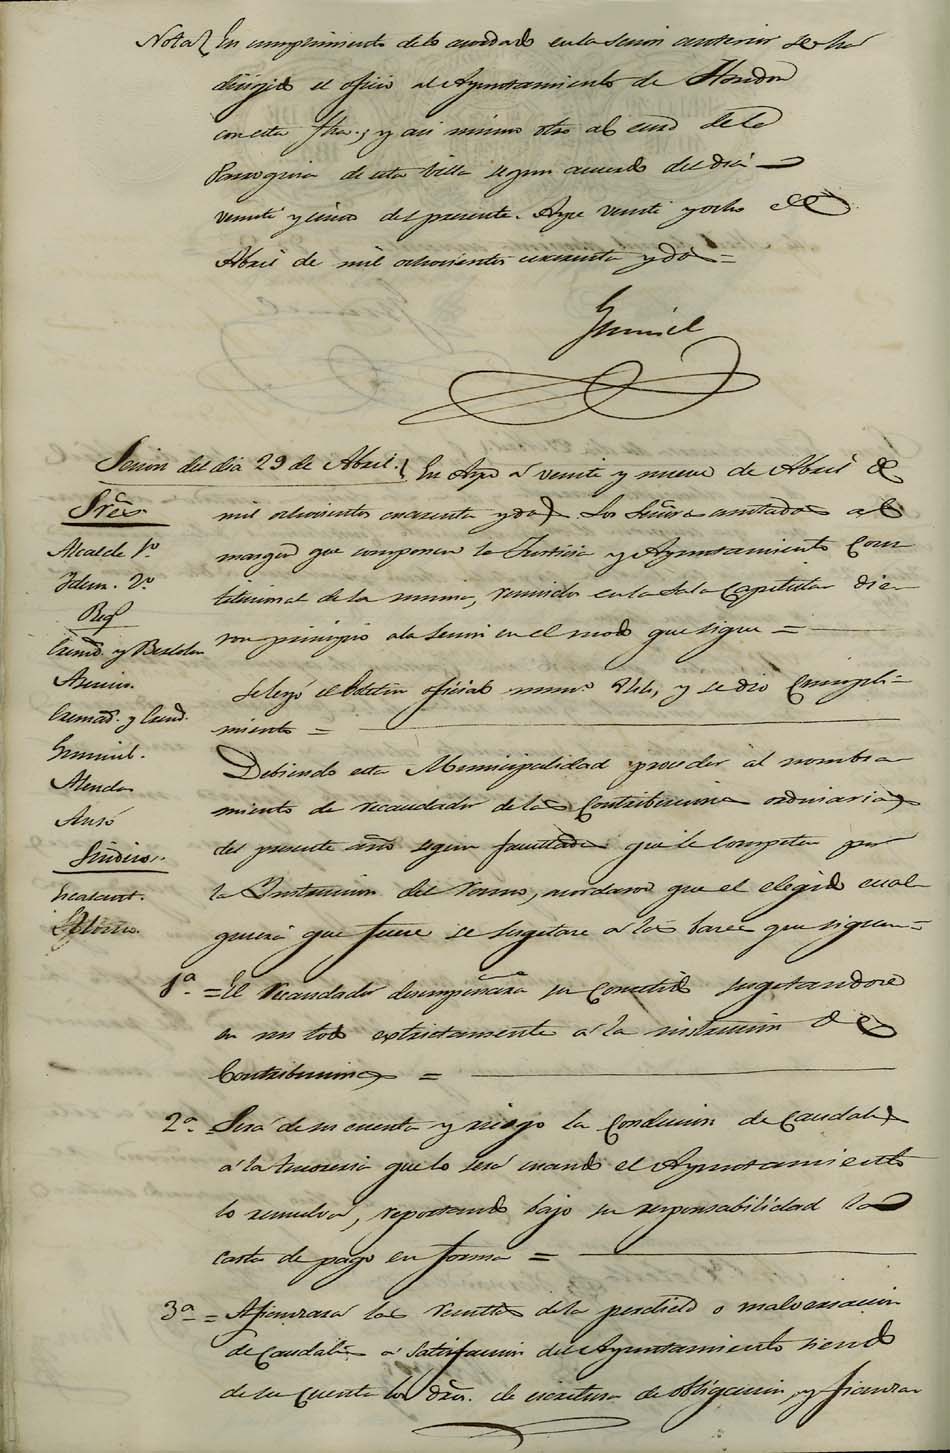 Nota En cumplimiento de lo acordado en la sesion anterior se ha
dirigido el oficio al Ayuntamiento de Hondon
con esta fha., y asi mismo otro al cura de la
Parroquia de esta Villa segun acuerdo del dia
veinti y cinco del presente. Aspe veinti y ocho de
Abril de mil ochocientos cuarenta y dos =
Sesion del dia 29 de Abril. En Aspe a veinte y nueve de Abril de
mil ochocientos cuarenta y dos. Los Señores anotados al
margen que componen la Justicia y Ayuntamiento Cons
titucional de la misma, reunidos en la Sala Capitular die-
ron principio a la sesion en el modo que sigue =
Sres.
Alcalde 1º
Idem. 2º
Reg.
Cremad. y Botella
Asencio.
Cremad. y Cand.
Gumiel.
Alenda
Ansó
Sindico.
Escalant.
Se leyó el Boletin oficial num.º 844, y se dio Cumpli-
miento =
Debiendo esta Municipalidad proceder al nombra
miento de recaudador de las Contribuciones ordinarias
del presente año segun facultades que le competen por
la Instruccion del ramo, acordaron que el elegido cual
quiera que fuere se sugetare a las bases que siguen =
1ª = El recaudador desempeñara su Cometido sugetandose
en un todo extrictamente a la instruccion de
Contribuciones =
2ª = Será de su cuenta y riesgo la Conducion de Caudales
a la tesoreria que lo será cuando el Ayuntamiento
lo resuelva, reportando bajo su responsabilidad la
carta de pago en forma =
3ª = Afianzará las resultas de la perdida o malversacion
de Caudales a satisfacion del Ayuntamiento siendo
de su Cuenta los dros. de escritura de obligacion, y fianza